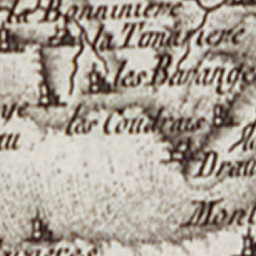 la Bonniniere
la Tomasiere
les Barange
les Coudrais
Drau
Mont